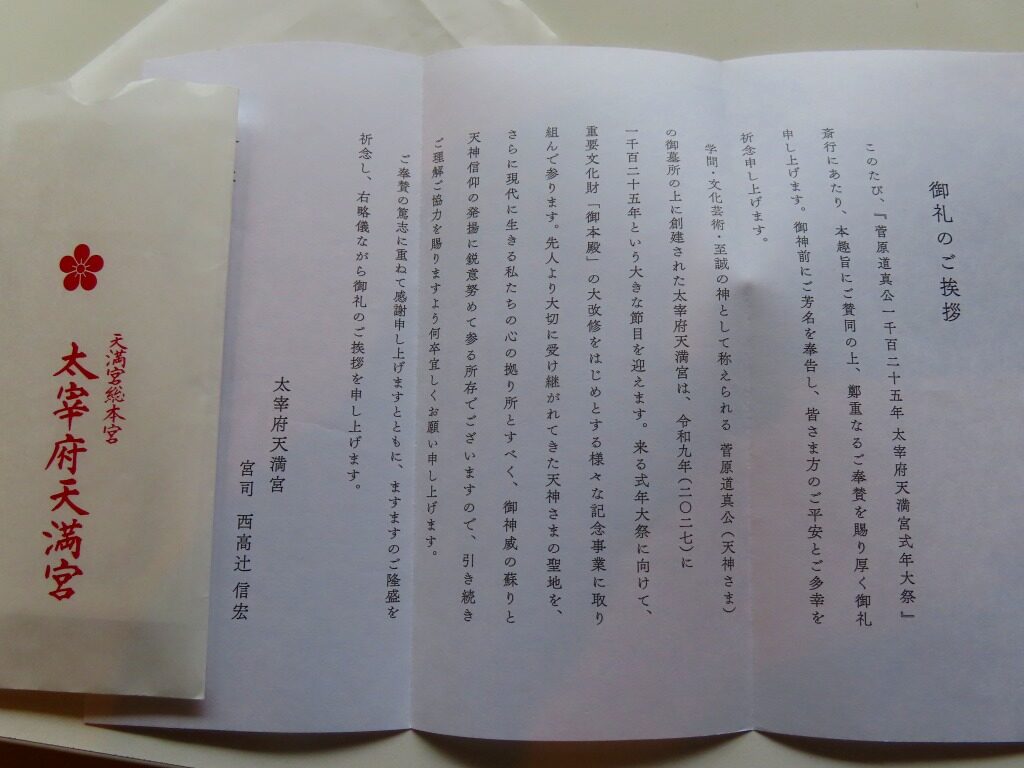 御礼のご挨拶
このたび、『菅原道真公一千百二十五年 太宰府天満宮式年大祭』
斎行にあたり、本趣旨にご賛同の上、鄭重なるご奉賛を賜り厚く御礼
申し上げます。御神前にご芳名を奉告し、皆さま方のご平安とご多幸を
祈念申し上げます。
学問・文化芸術・至誠の神として称えられる 菅原道真公（天神さま）
の御墓所の上に創建された太宰府天満宮は、令和九年（二〇二七）に
一千百二十五年という大きな節目を迎えます。来る式年大祭に向けて、
重要文化財「御本殿」の大改修をはじめとする様々な記念事業に取り
組んで参ります。先人より大切に受け継がれてきた天神さまの聖地を、
さらに現代に生きる私たちの心の拠り所とすべく、御神威の蘇りと
天神信仰の発揚に鋭意努めて参る所存でございますので、引き続き
ご理解ご協力を賜りますよう何卒宜しくお願い申し上げます。
ご奉賛の篤志に重ねて感謝申し上げますとともに、ますますのご隆盛を
祈念し、右略儀ながら御礼のご挨拶を申し上げます。
太宰府天満宮
宮司 西高辻 信宏
天満宮総本宮
太宰府天満宮